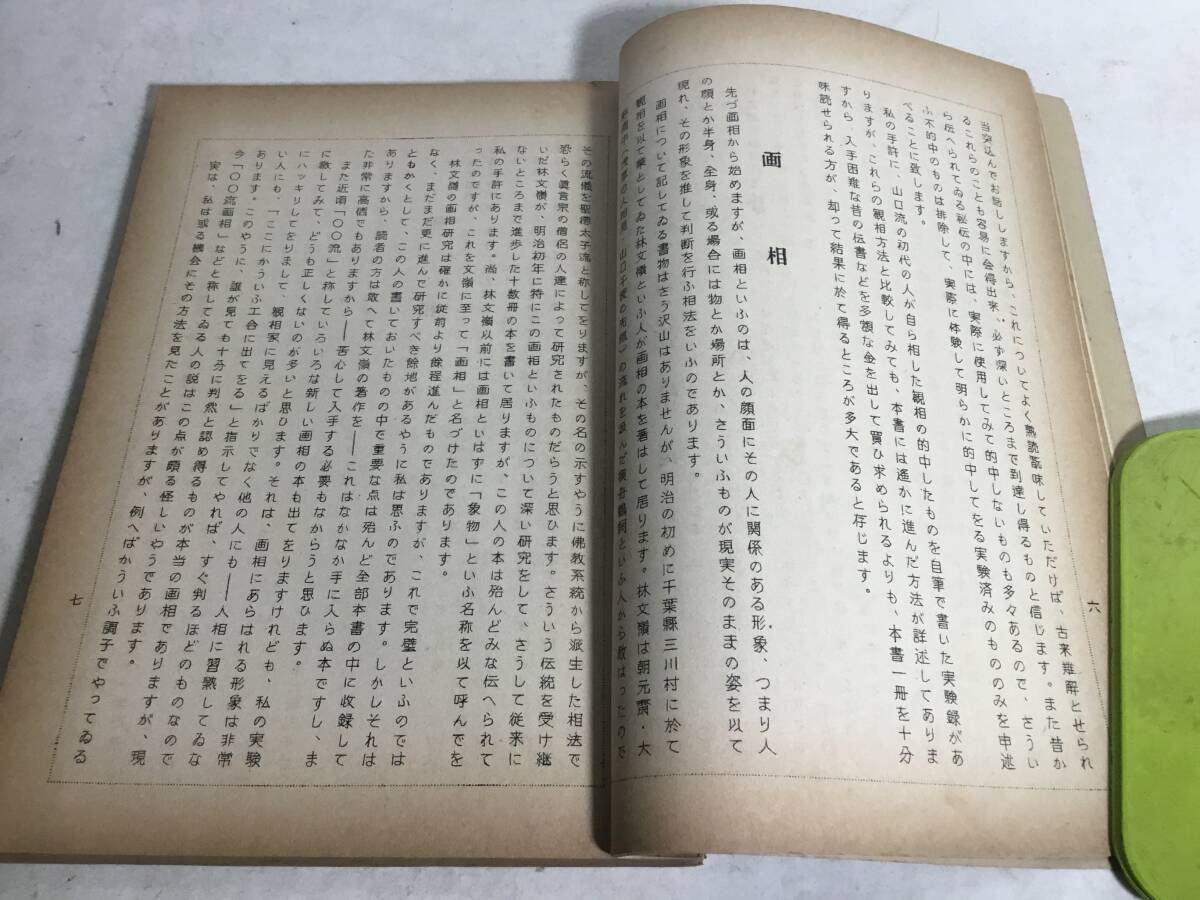 六
当突込んでお話ししますから、これについてよく熟読翫味していただけば、古来難解とせられ
るこれらのことも容易に会得出来、必ず深いところまで到達し得るものと信じます。また昔か
ら伝へられてゐる秘伝の中には、実際に使用してみて的中しないものも多々あるので、さうい
ふ不的中のものは排除して、実際に体験して明らかに的中してをる実験済みのもののみを申述
べることに致します。
私の手許に、山口流の初代の人が自ら相した観相の的中したものを自筆で書いた実験録があ
りますが、これらの観相方法と比較してみても、本書には遙かに進んだ方法が詳述してありま
すから、入手困難な昔の伝書などを多額な金を出して買ひ求められるよりも、本書一冊を十分
味読せられる方が、却って結果に於て得るところが多大であると存じます。
画相
先づ画相から始めますが、画相といふのは、人の顔面にその人に関係のある形象、つまり人
の顔とか半身、全身、或る場合には物とか場所とか、さういふものが現実そのままの姿を以て
現れ、その形象を推して判断を行ふ相法をいふのであります。
画相について記してゐる書物はさう沢山はありませんが、明治の初めに千葉縣三川村に於て
観相を以て業としてゐた林文嶺といふ人が画相の本を著はして居ります。林文嶺は朝元齋・大
山口千枝の流れを汲んだ といふ人から教はったので
その流儀を聖徳太子流と称してをりますが、その名の示すやうに佛教系統から派生した相法で
恐らく眞言宗の僧侶の人達によって研究されたものだらうと思ひます。さういう伝統を受け継
いだ林文嶺が、明治初年に特にこの画相といふものについて深い研究をして、さうして従来に
ないところまで進歩した十数冊の本を書いて居りますが、この人の本は殆んどみな伝へられて
私の手許にあります。尚、林文嶺以前には画相といはずに「象物」といふ名称を以て呼んでを
ったのですが、これを文嶺に至って「画相」と名づけたのであります。
林文嶺の画相研究は確かに従前より餘程進んだものでありますが、これで完璧といふのでは
なく、まだまだ更に進んで研究すべき餘地があるやうに私は思ふのであります。しかしそれは
ともかくとして、この人の書いておいたものの中で重要な点は殆んど全部本書の中に収録して
ありますから、読者の方は敢へて林文嶺の著作を――これはなかなか手に入らぬ本ですし、ま
た非常に高価でもありますから――苦心して入手する必要もなからうと思ひます。
また近頃「〇〇流」と称していろいろな新しい画相の本も出てをりますけれども、私の実験
に徴してみて、どうも正しくないのが多いと思ひます。それは、画相にあらはれる形象は非常
にハッキリしてをりまして、観相家に見えるばかりでなく他の人にも――人相に習熟してゐな
い人にも、「ここにかういふ工合に出てをる」と指示してやれば、すぐ判るほどのものなので
あります。このやうに、誰が見ても十分に判然と認め得るものが本当の画相でありますが、現
今「〇〇流画相」などと称してゐる人の説はこの点が頗る怪しいやうであります。
実は、私は或る機会にその方法を見たことがありますが、例へばかういふ調子でやってゐる
七